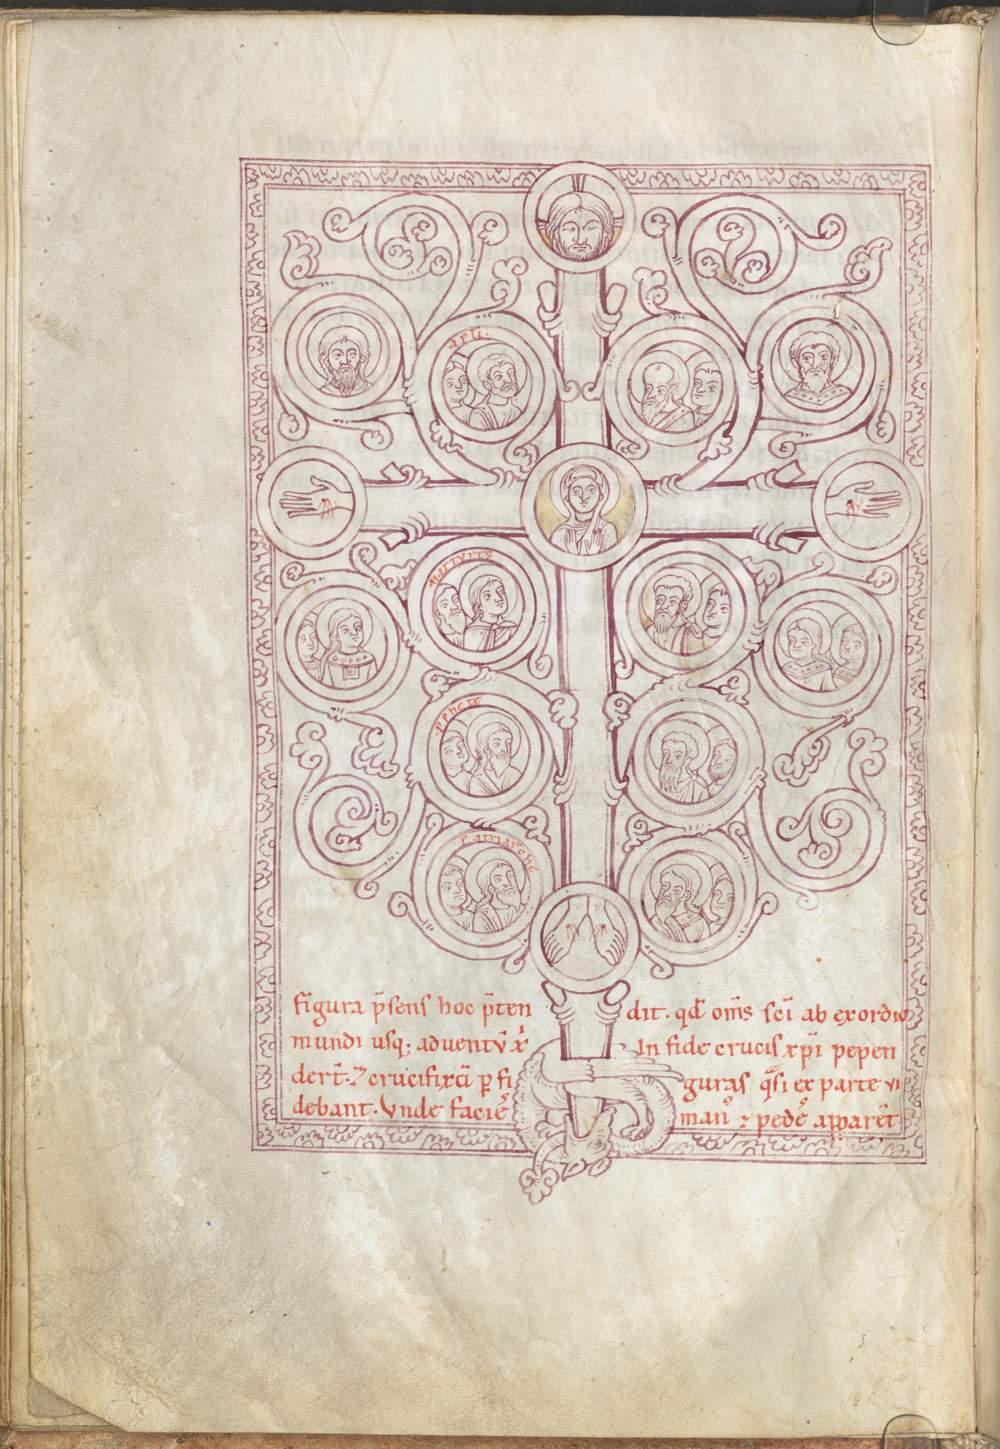 apli.
martyres
pphete
patriarche
figura p̄sens hoc p̄ten dit. qd̄ om̄s sc̄i ab exordio
mundi usq; adventū x̄ In fide crucis xp̄i pepen
der̄t. ⁊ crucifixū p̱ fi guras q̄si ex parte vi
debant. Vnde facies man᷒ ⁊ pedes apparēt.